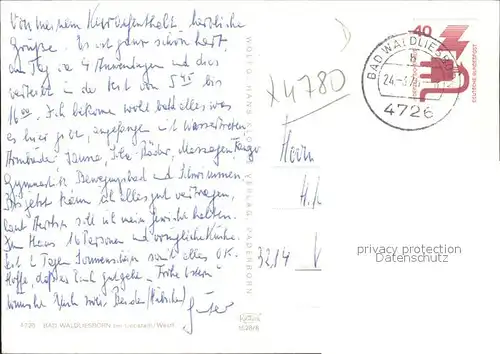 Von meinem Kuraufenthalt herzliche
Grüsse. Es ist ganz schön hart,
am Tag ca 4 Anwendungen und dies
verteilt in der Zeit von 5 45 bis
16 00. Ich bekomme wohl bald alles was
es hier gibt, angefangen mit Wassertreten
Armbäder, Sauna, Sole-Bäder, Massagen, Fango
Gymnastik Bewegungsbad und Schwimmen.
Bis jetzt kann ich alles gut vertragen,
laut Arzt soll ich mein Gewicht halten.
Im Haus 16 Personen und vorzügliche Küche.
Seit 2 Tagen Sonnenschein somit alles OK.
Hoffe, daß es Euch gut geht. Frohe Ostern
wünscht
Günter
4726 BAD WALDLIESBORN bei Lippstadt/Westf.
WOLFG. HANS KLOCKE VERLAG, PADERBORN
x4780
Herrn
H.
32,14
BAD WALDLIESBORN
24.-3.75
4726
40
DEUTSCHE BUNDESPOST
privacy protection
Datenschutz